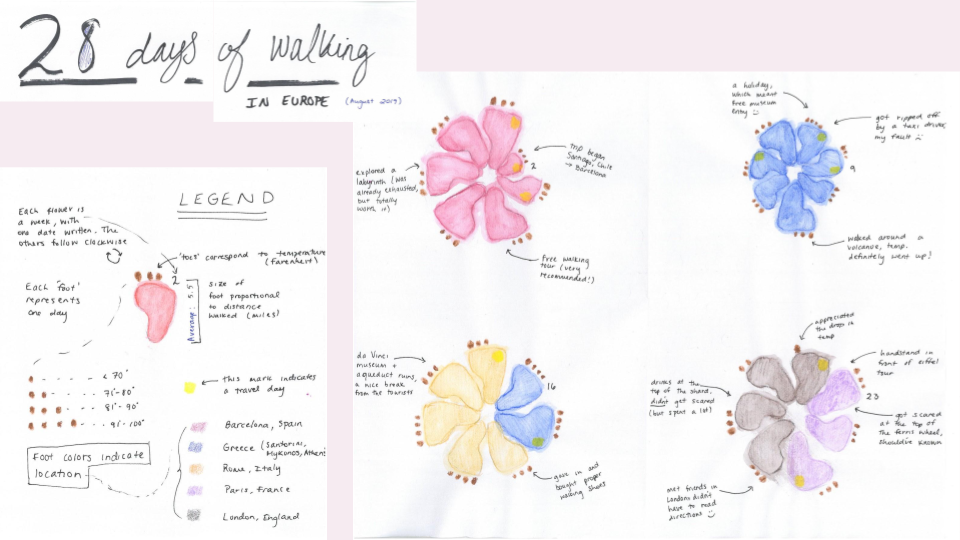 28 days of walking
IN EUROPE (August 2019)
LEGEND
Each flower is
a week, with
one date written. The
others follow clockwise
"toes" correspond to temperature
(farenheit)
2
Each "foot"
represents
one day
Average: 5.5
size of
foot proportional
to distance
walked (miles)
< 70°
71°-80°
81°-90°
91°-100°
this mark indicates
a travel day
Foot colors indicate
location
Barcelona, Spain
Greece (Santorini,
Mykonos, Athens
Rome, Italy
Paris, France
London, England
explored a
labyrinth (was
already exhausted,
but totally
worth it)
2
trip began
Santiago, Chile
→ Barcelona
Free walking
tour (very
recommended!)
a holiday,
which meant
free museum
entry
got ripped off
by a taxi driver,
my fault
9
walked around a
volcano, temp.
definitely went up!
da Vinci
museum +
aqueduct ruins,
a nice break
from the tourists
16
gave in and
bought proper
walking shoes
appreciated
the drop in
temp
handstand in
front of eiffel
tour
23
got scared
at the top of
the ferris wheel,
should've known
drinks at the
top of the shard,
didn't get scared
(but spent a lot)
met friends in
London: didn't
have to read
directions